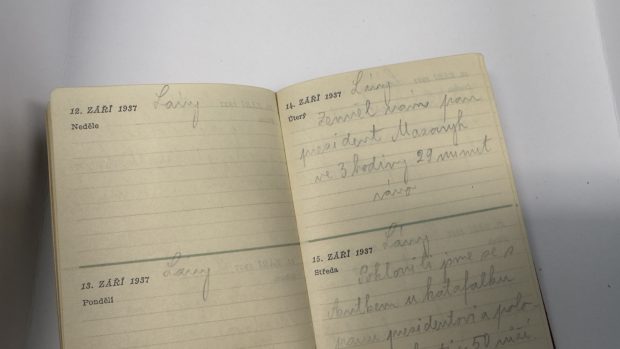 12. ZÁŘÍ 1937 Lány
Neděle
13. ZÁŘÍ 1937 Lány
Pondělí
14. ZÁŘÍ 1937 Lány
Úterý Zemřel nám pan
president Masaryk
ve 3 hodiny 29 minut
ráno
15. ZÁŘÍ 1937 Lány
Středa Poklonili jsme se s
u katafalku
panu presidentovi a polo-
50 růží